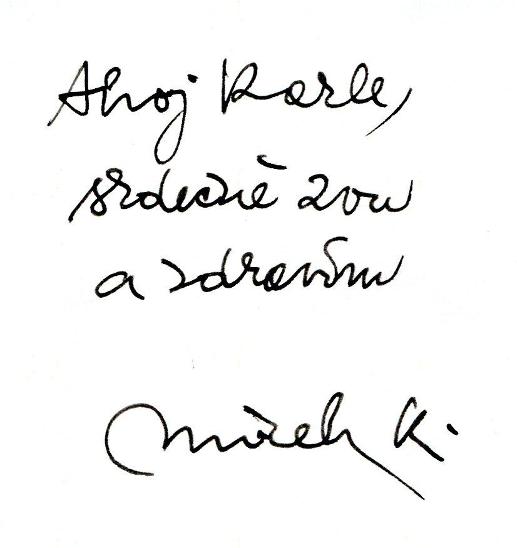 Ahoj Karle,
srdečně zvu
a zdravím
Mirek K.